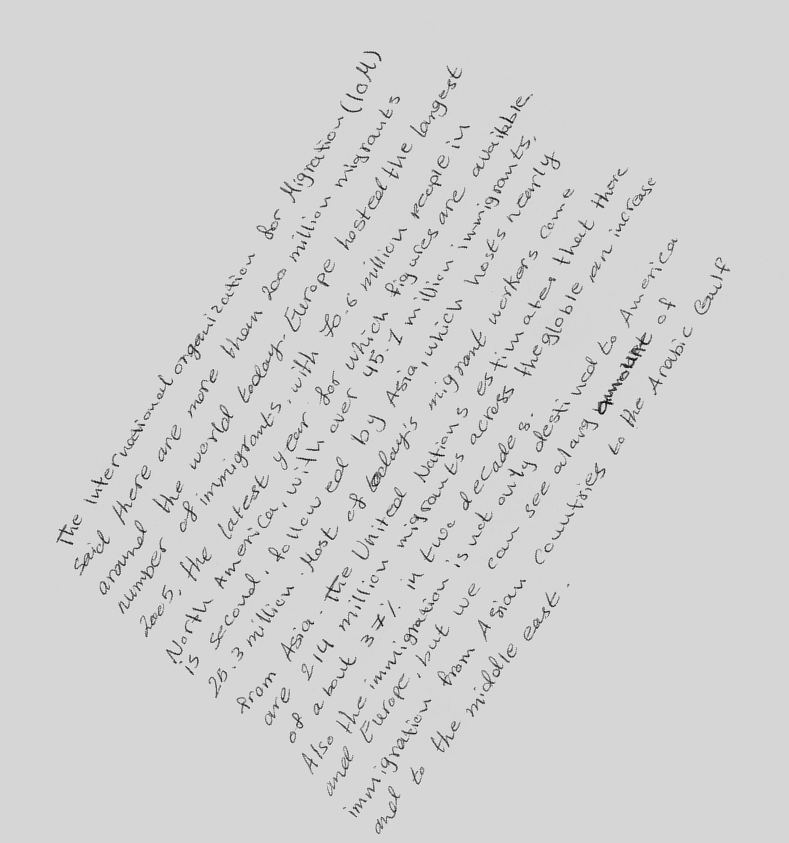 The International organization for Migration (IOM)
said there are more than 200 million migrants
around the world today. Europe hosted the largest
number of immigrants, with 70.6 million people in
2005, the latest year for which figures are available.
North America, with over 45.1 million immigrants,
is second, followed by Asia, which hosts nearly
25.3 million. Most of today's migrant workers come
from Asia. The United Nations estimates that there
are 214 million migrants across the globle an increase
of about 37% in two decades.
Also the immigration is not only destined to America
and Europe, but we can see alarg amount of
immigration from Asian countries to the Arabic Gulf
and to the middle east.